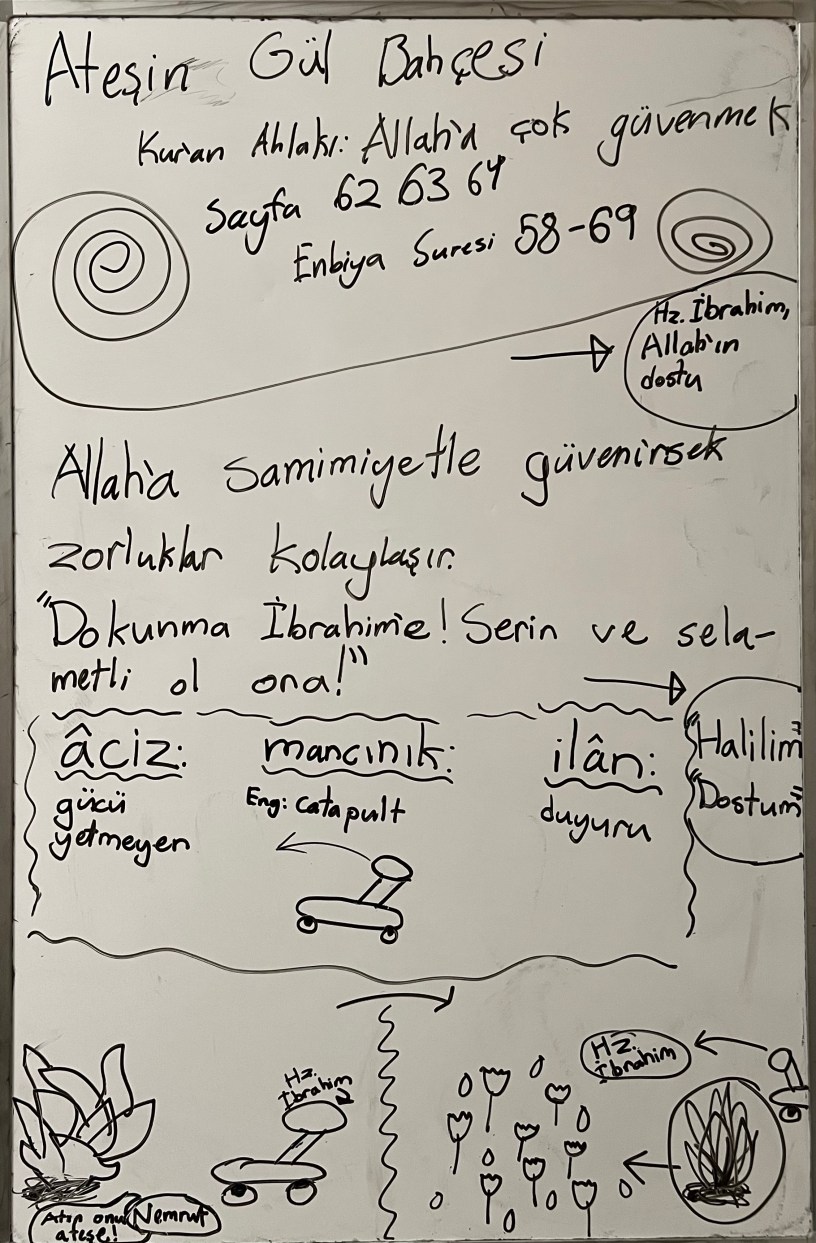 Ateşin Gül Bahçesi
Kur'an Ahlakı: Allah'a çok güvenmek
Sayfa 62 63 64
Enbiya Suresi 58-69
Hz. İbrahim,
Allah'ın
dostu
Allah'a samimiyetle güvenirsek
zorluklar kolaylaşır.
"Dokunma İbrahim'e! Serin ve sela-
metli ol ona!"
âciz:
gücü
yetmeyen
mancınık:
Eng: catapult
ilân:
duyuru
"Halilim"
"Dostum"
Hz.
İbrahim
Atın onu
ateşe!
Nemrut
Hz.
İbrahim